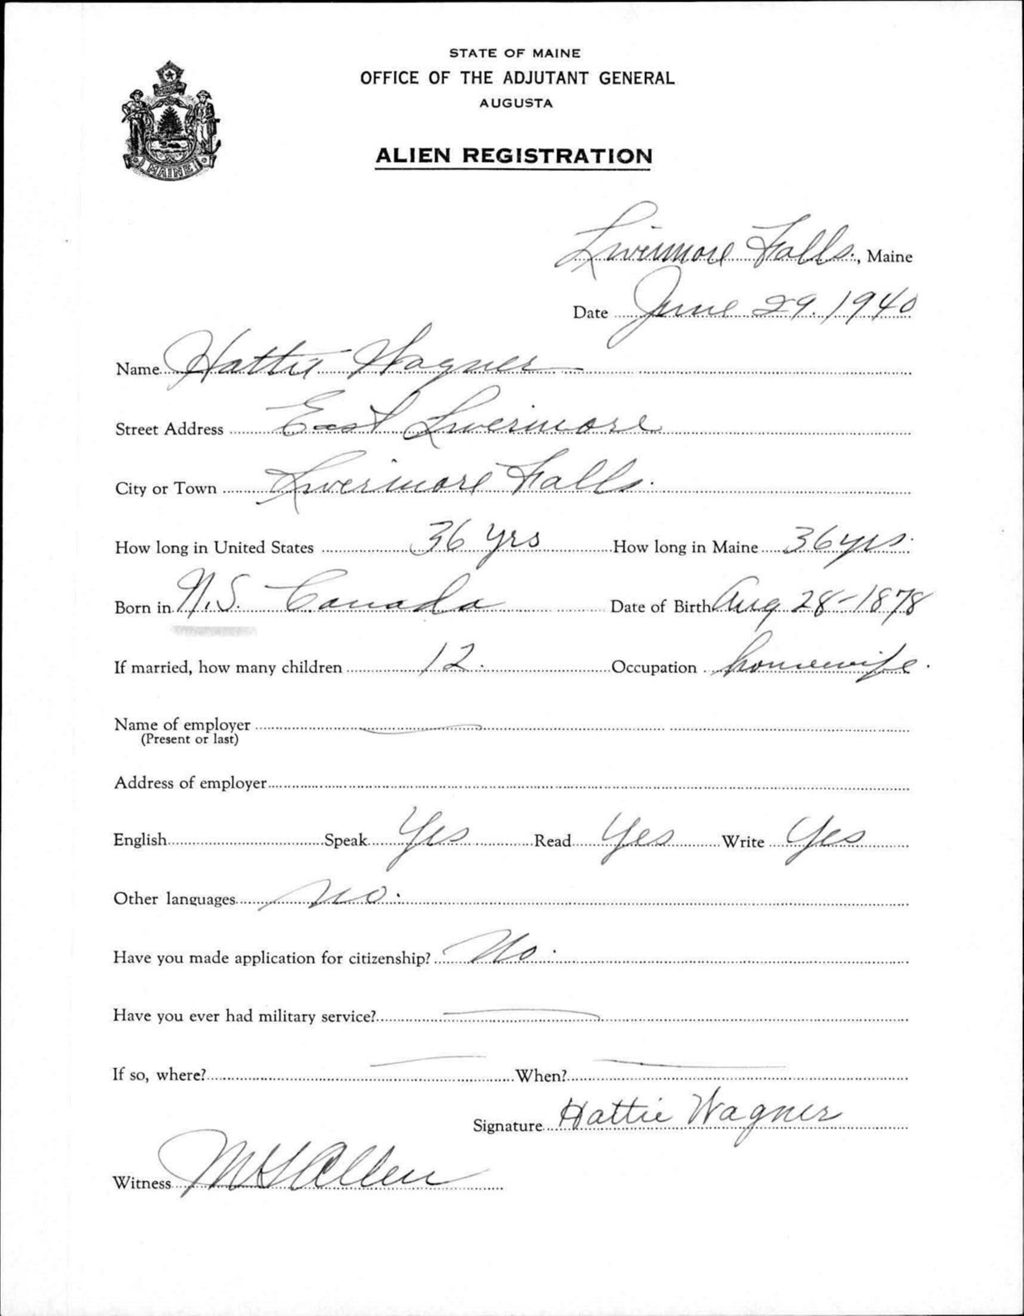 STATE OF MAINE
OFFICE OF THE ADJUTANT GENERAL
AUGUSTA
ALIEN REGISTRATION
MAINE
Livermore Falls., Maine
Date June 29. 1940
Name Hattie Wagner
Street Address East Livermore
City or Town Livermore Falls.
How long in United States 36 yrs How long in Maine 36 yrs.
Born in N.S. Canada Date of Birth Aug 28-1878
If married, how many children 12. Occupation housewife.
Name of employer
(Present or last)
Address of employer
English Speak Yes Read Yes Write Yes
Other languages no.
Have you made application for citizenship? No.
Have you ever had military service?
If so, where? When?
Signature Hattie Wagner
Witness Allen